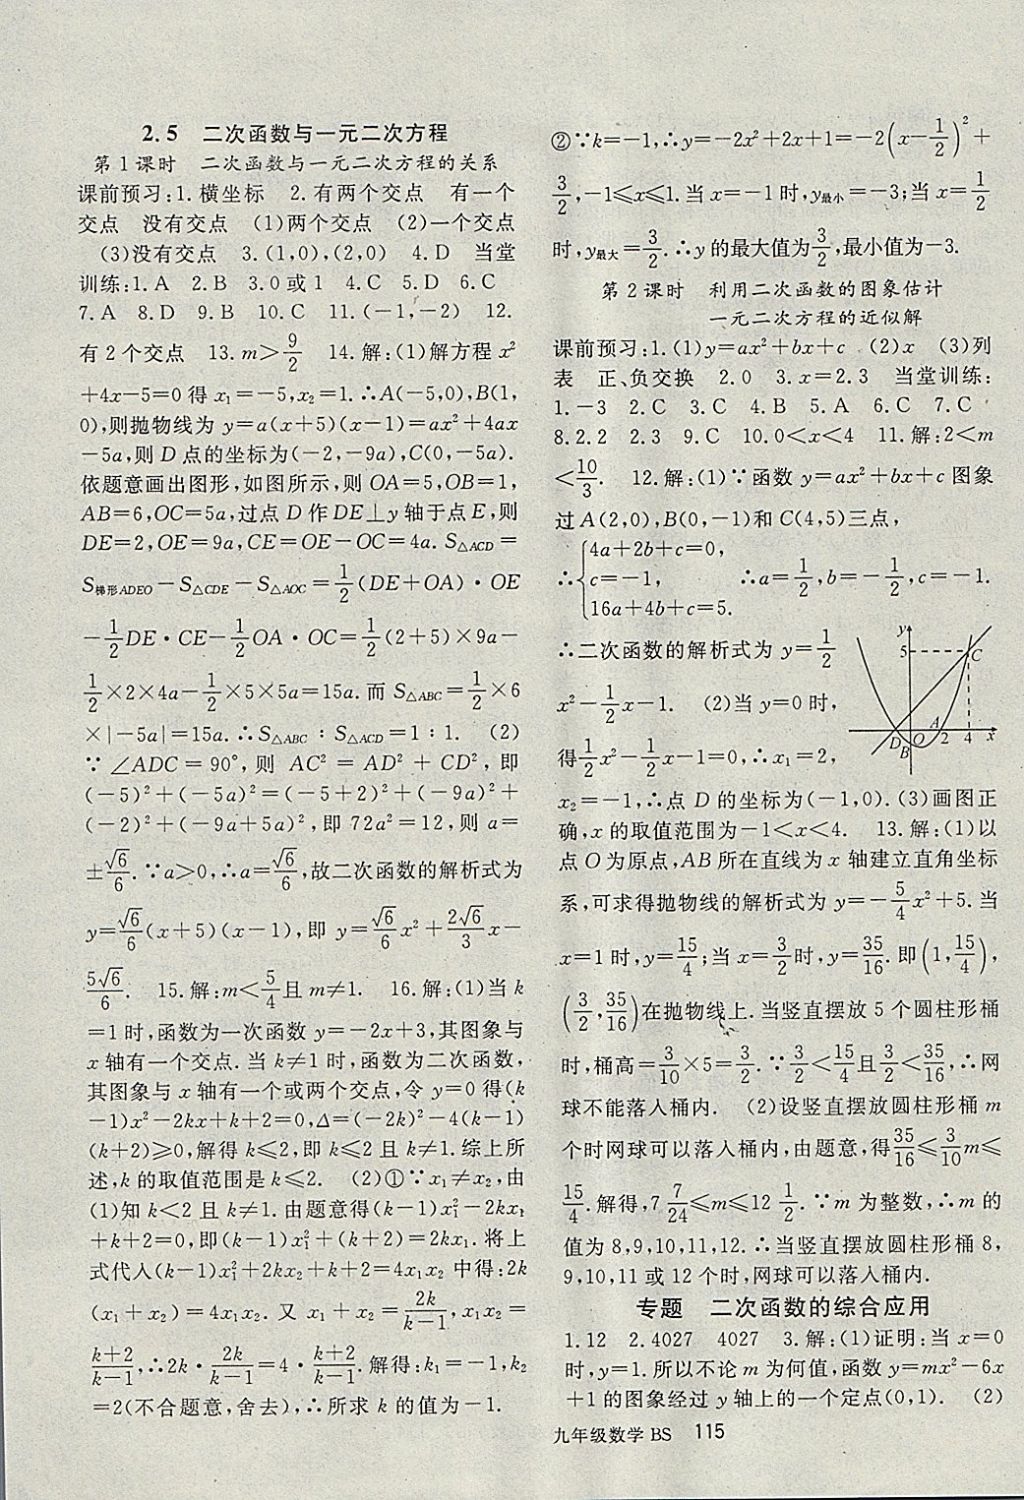 2.5 二次函数与一元二次方程
第1课时 二次函数与一元二次方程的关系
课前预习:1.横坐标 2.有两个交点 有一个
交点 没有交点 (1)两个交点 (2)一个交点
(3)没有交点 3.(1,0),(2,0) 4.D 当堂
训练:1.A 2.B 3.0或1 4.C 5.D 6.C
7.A 8.D 9.B 10.C 11.(-1,-2) 12.
有2个交点 13.m>9/2 14.解:(1)解方程x²
+4x-5=0得x₁=-5,x₂=1.∴A(-5,0),B(1,
0),则抛物线为y=a(x+5)(x-1)=ax²+4ax
-5a,则D点的坐标为(-2,-9a),C(0,-5a).
依题意画出图形,如图所示,则OA=5,OB=1,
AB=6,OC=5a,过点D作DE⊥y轴于点E,则
DE=2,OE=9a,CE=OE-OC=4a.S△ACD=
S梯形ADEO-S△CDE-S△AOC=1/2(DE+OA)·OE
-1/2DE·CE-1/2OA·OC=1/2(2+5)×9a-
1/2×2×4a-1/2×5×5a=15a.而S△ABC=1/2×6
×|-5a|=15a.∴S△ABC:S△ACD=1:1. (2)
∵∠ADC=90°,则AC²=AD²+CD²,即
(-5)²+(-5a)²=(-5+2)²+(-9a)²+
(-2)²+(-9a+5a)²,即72a²=12,则a=
±√6/6.∵a>0,∴a=√6/6,故二次函数的解析式为
y=√6/6(x+5)(x-1),即y=√6/6x²+2√6/3x-
5√6/6. 15.解:m<5/4且m≠1. 16.解:(1)当k
=1时,函数为一次函数y=-2x+3,其图象与
x轴有一个交点.当k≠1时,函数为二次函数,
其图象与x轴有一个或两个交点,令y=0得(k
-1)x²-2kx+k+2=0,Δ=(-2k)²-4(k-1)
(k+2)≥0,解得k≤2,即k≤2且k≠1.综上所
述,k的取值范围是k≤2. (2)①∵x₁≠x₂,由
(1)知k<2且k≠1.由题意得(k-1)x₁²-2kx₁
+k+2=0,即(k-1)x₁²+(k+2)=2kx₁.将上
式代入(k-1)x₁²+2kx₂+k+2=4x₁x₂中得:2k
(x₁+x₂)=4x₁x₂.又x₁+x₂=2k/(k-1),x₁x₂=
(k+2)/(k-1),∴2k·2k/(k-1)=4·(k+2)/(k-1).解得:k₁=-1,k₂
=2(不合题意,舍去),∴所求k的值为-1.
②∵k=-1,∴y=-2x²+2x+1=-2(x-1/2)²+
3/2,-1≤x≤1.当x=-1时,y最小=-3;当x=1/2
时,y最大=3/2.∴y的最大值为3/2,最小值为-3.
第2课时 利用二次函数的图象估计
一元二次方程的近似解
课前预习:1.(1)y=ax²+bx+c (2)x (3)列
表 正、负交换 2.0 3.x=2.3 当堂训练:
1.-3 2.C 3.C 4.B 5.A 6.C 7.C
8.2.2 2.3 9.C 10.0<x<4 11.解:2<m
<10/3. 12.解:(1)∵函数y=ax²+bx+c图象
过A(2,0),B(0,-1)和C(4,5)三点,
∴{4a+2b+c=0,
c=-1, ∴a=1/2,b=-1/2,c=-1.
16a+4b+c=5.
∴二次函数的解析式为y=1/2
x²-1/2x-1. (2)当y=0时,
得1/2x²-1/2x-1=0,∴x₁=2,
y 5 C D O A 2 4 x B
x₂=-1,∴点D的坐标为(-1,0).(3)画图正
确,x的取值范围为-1<x<4. 13.解:(1)以
点O为原点,AB所在直线为x轴建立直角坐标
系,可求得抛物线的解析式为y=-5/4x²+5.当
x=1时,y=15/4;当x=3/2时,y=35/16.即(1,15/4),
(3/2,35/16)在抛物线上.当竖直摆放5个圆柱形桶
时,桶高=3/10×5=3/2.∵3/2<15/4且3/2<35/16,∴网
球不能落入桶内. (2)设竖直摆放圆柱形桶m
个时网球可以落入桶内,由题意,得35/16≤3/10m≤
15/4.解得,7 7/24≤m≤12 1/2.∵m为整数,∴m的
值为8,9,10,11,12.∴当竖直摆放圆柱形桶8,
9,10,11或12个时,网球可以落入桶内.
专题 二次函数的综合应用
1.12 2.4027 4027 3.解:(1)证明:当x=0
时,y=1.所以不论m为何值,函数y=mx²-6x
+1的图象经过y轴上的一个定点(0,1). (2)
九年级数学 BS 115